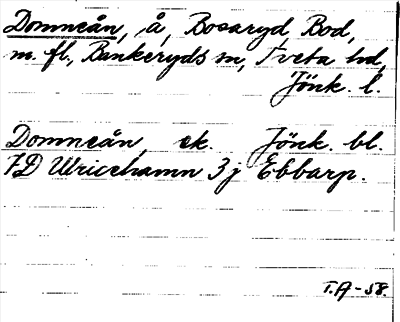 Domneån, å, Bosaryd, Bod,
m. fl., Bankeryds sn, Tveta hd,
Jönk. l.
Domneån, ek. Jönk. bl.
7D Ulricehamn 3j Ebbarp.
T.A-58.